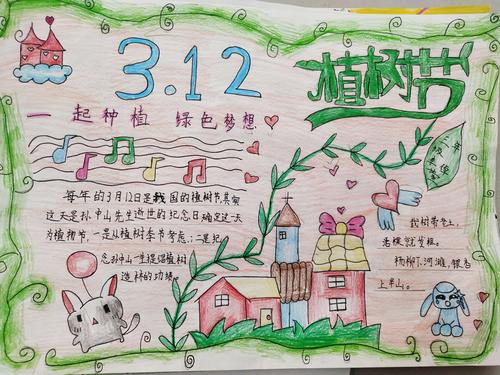 3.12
植树节
一起种植 绿色梦想
每年的3月12日是我国的植树节,其实
这天是孙中山先生逝世的纪念日确定这一天
为植物节,一是从植树季节考虑,;二是纪
念孙中山一生提倡植树
造林的功绩。
我树带它上,
老模就节根。
杨柳下河滩,银杏
上半山。